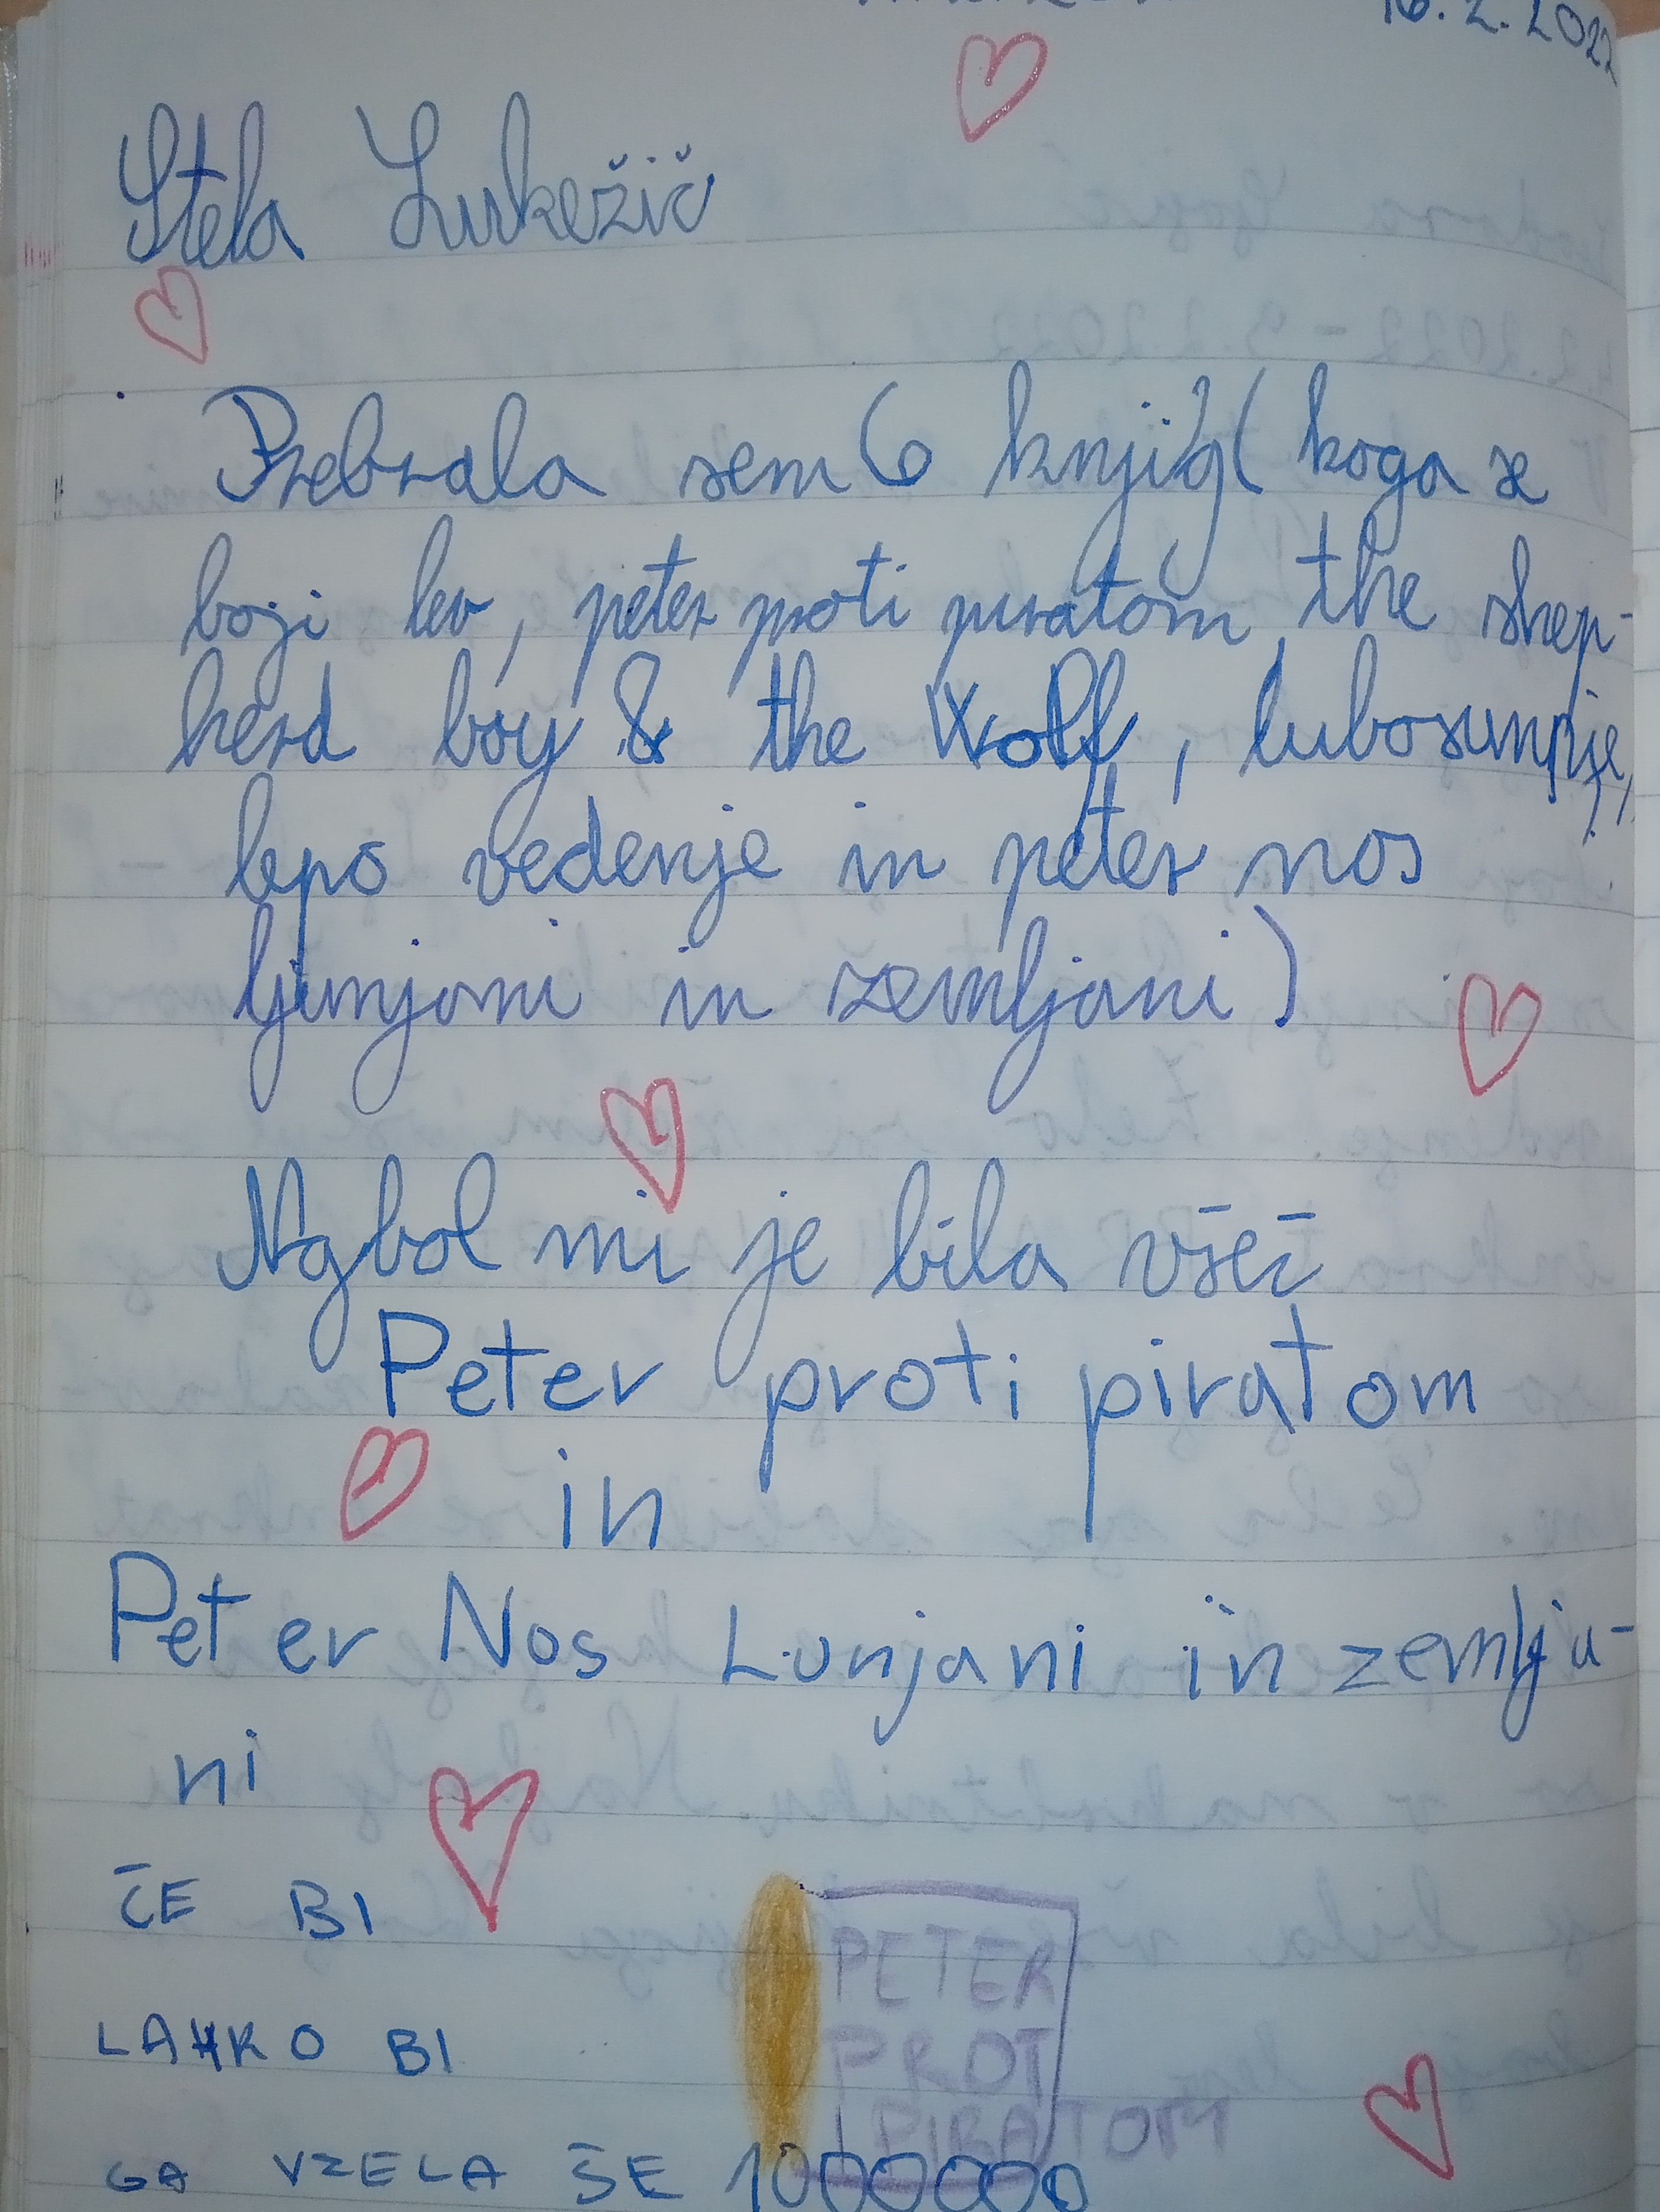 16.2.2022
Stela Lukežič
Prebrala sem 6 knjig( koga se
boji lev, peter proti piratom, the shep-
herd boy & the Wolf, lubosumnje,
lepo vedenje in peter nos
ljunjani in zemljani)
Najbol mi je bila všeč
Peter proti piratom
in
Peter Nos Lunjani in zemlja-
ni
ČE BI
LAHKO BI
GA VZELA ŠE 1000000
PETER
PROT
PIRATOM